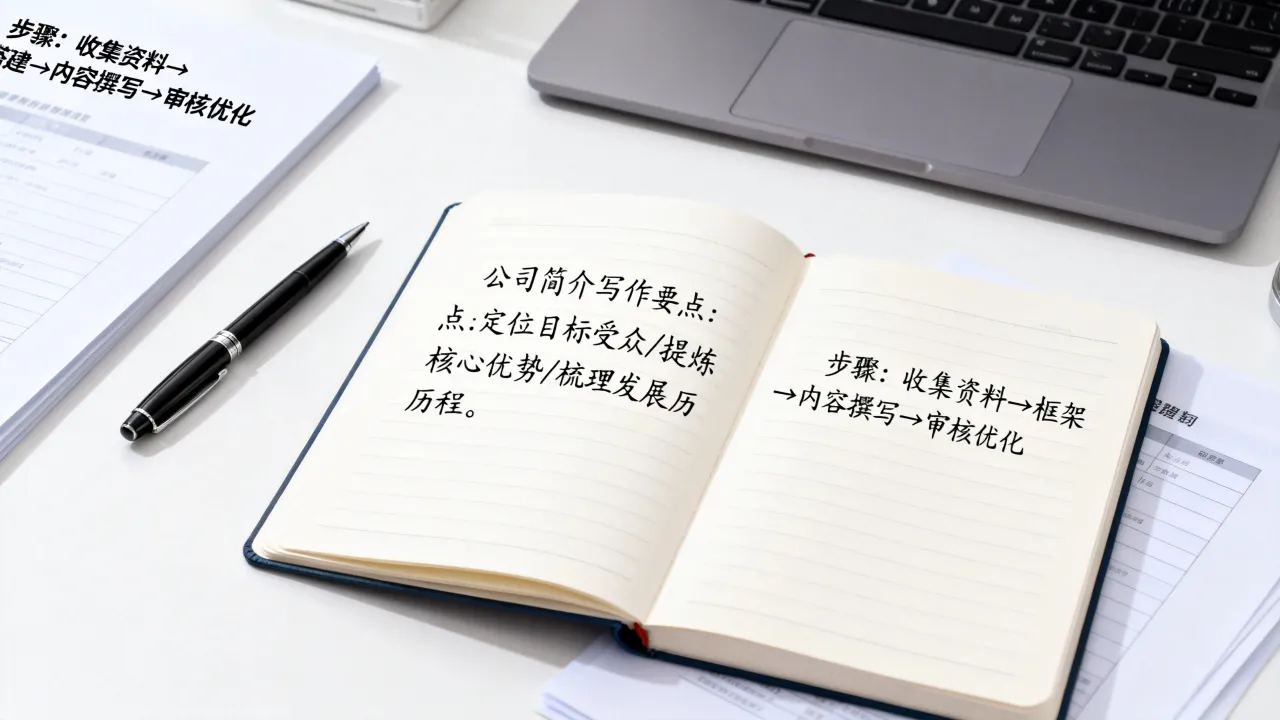 步骤：收集资料→
搭建→内容撰写→审核优化
公司简介写作要点：
点:定位目标受众/提炼
核心优势/梳理发展历
历程。
步骤：收集资料→框架
→内容撰写→审核优化